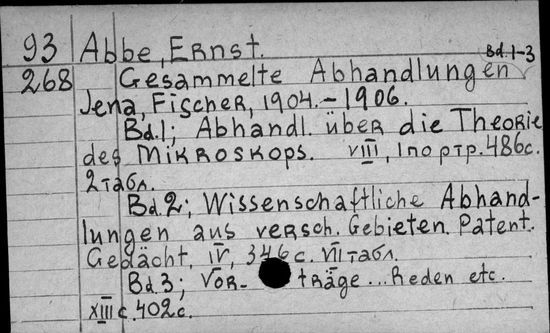 93 Abbe, Ernst. Bd. 1-3
268 Gesammelte Abhandlungen
Jena, Fischer, 1904.-1906.
Bd. 1; Abhandl. über die Theorie
des Mikroskops. VIII, 1 портр. 486 с.
2 табл.
Bd. 2; Wissenschaftliche Abhand-
lungen aus versch. Gebieten. Patent.
Gedächt, IV, 346 с. VII табл.
Bd. 3; Vor- träge... Reden etc.
XIII с. 402 с.